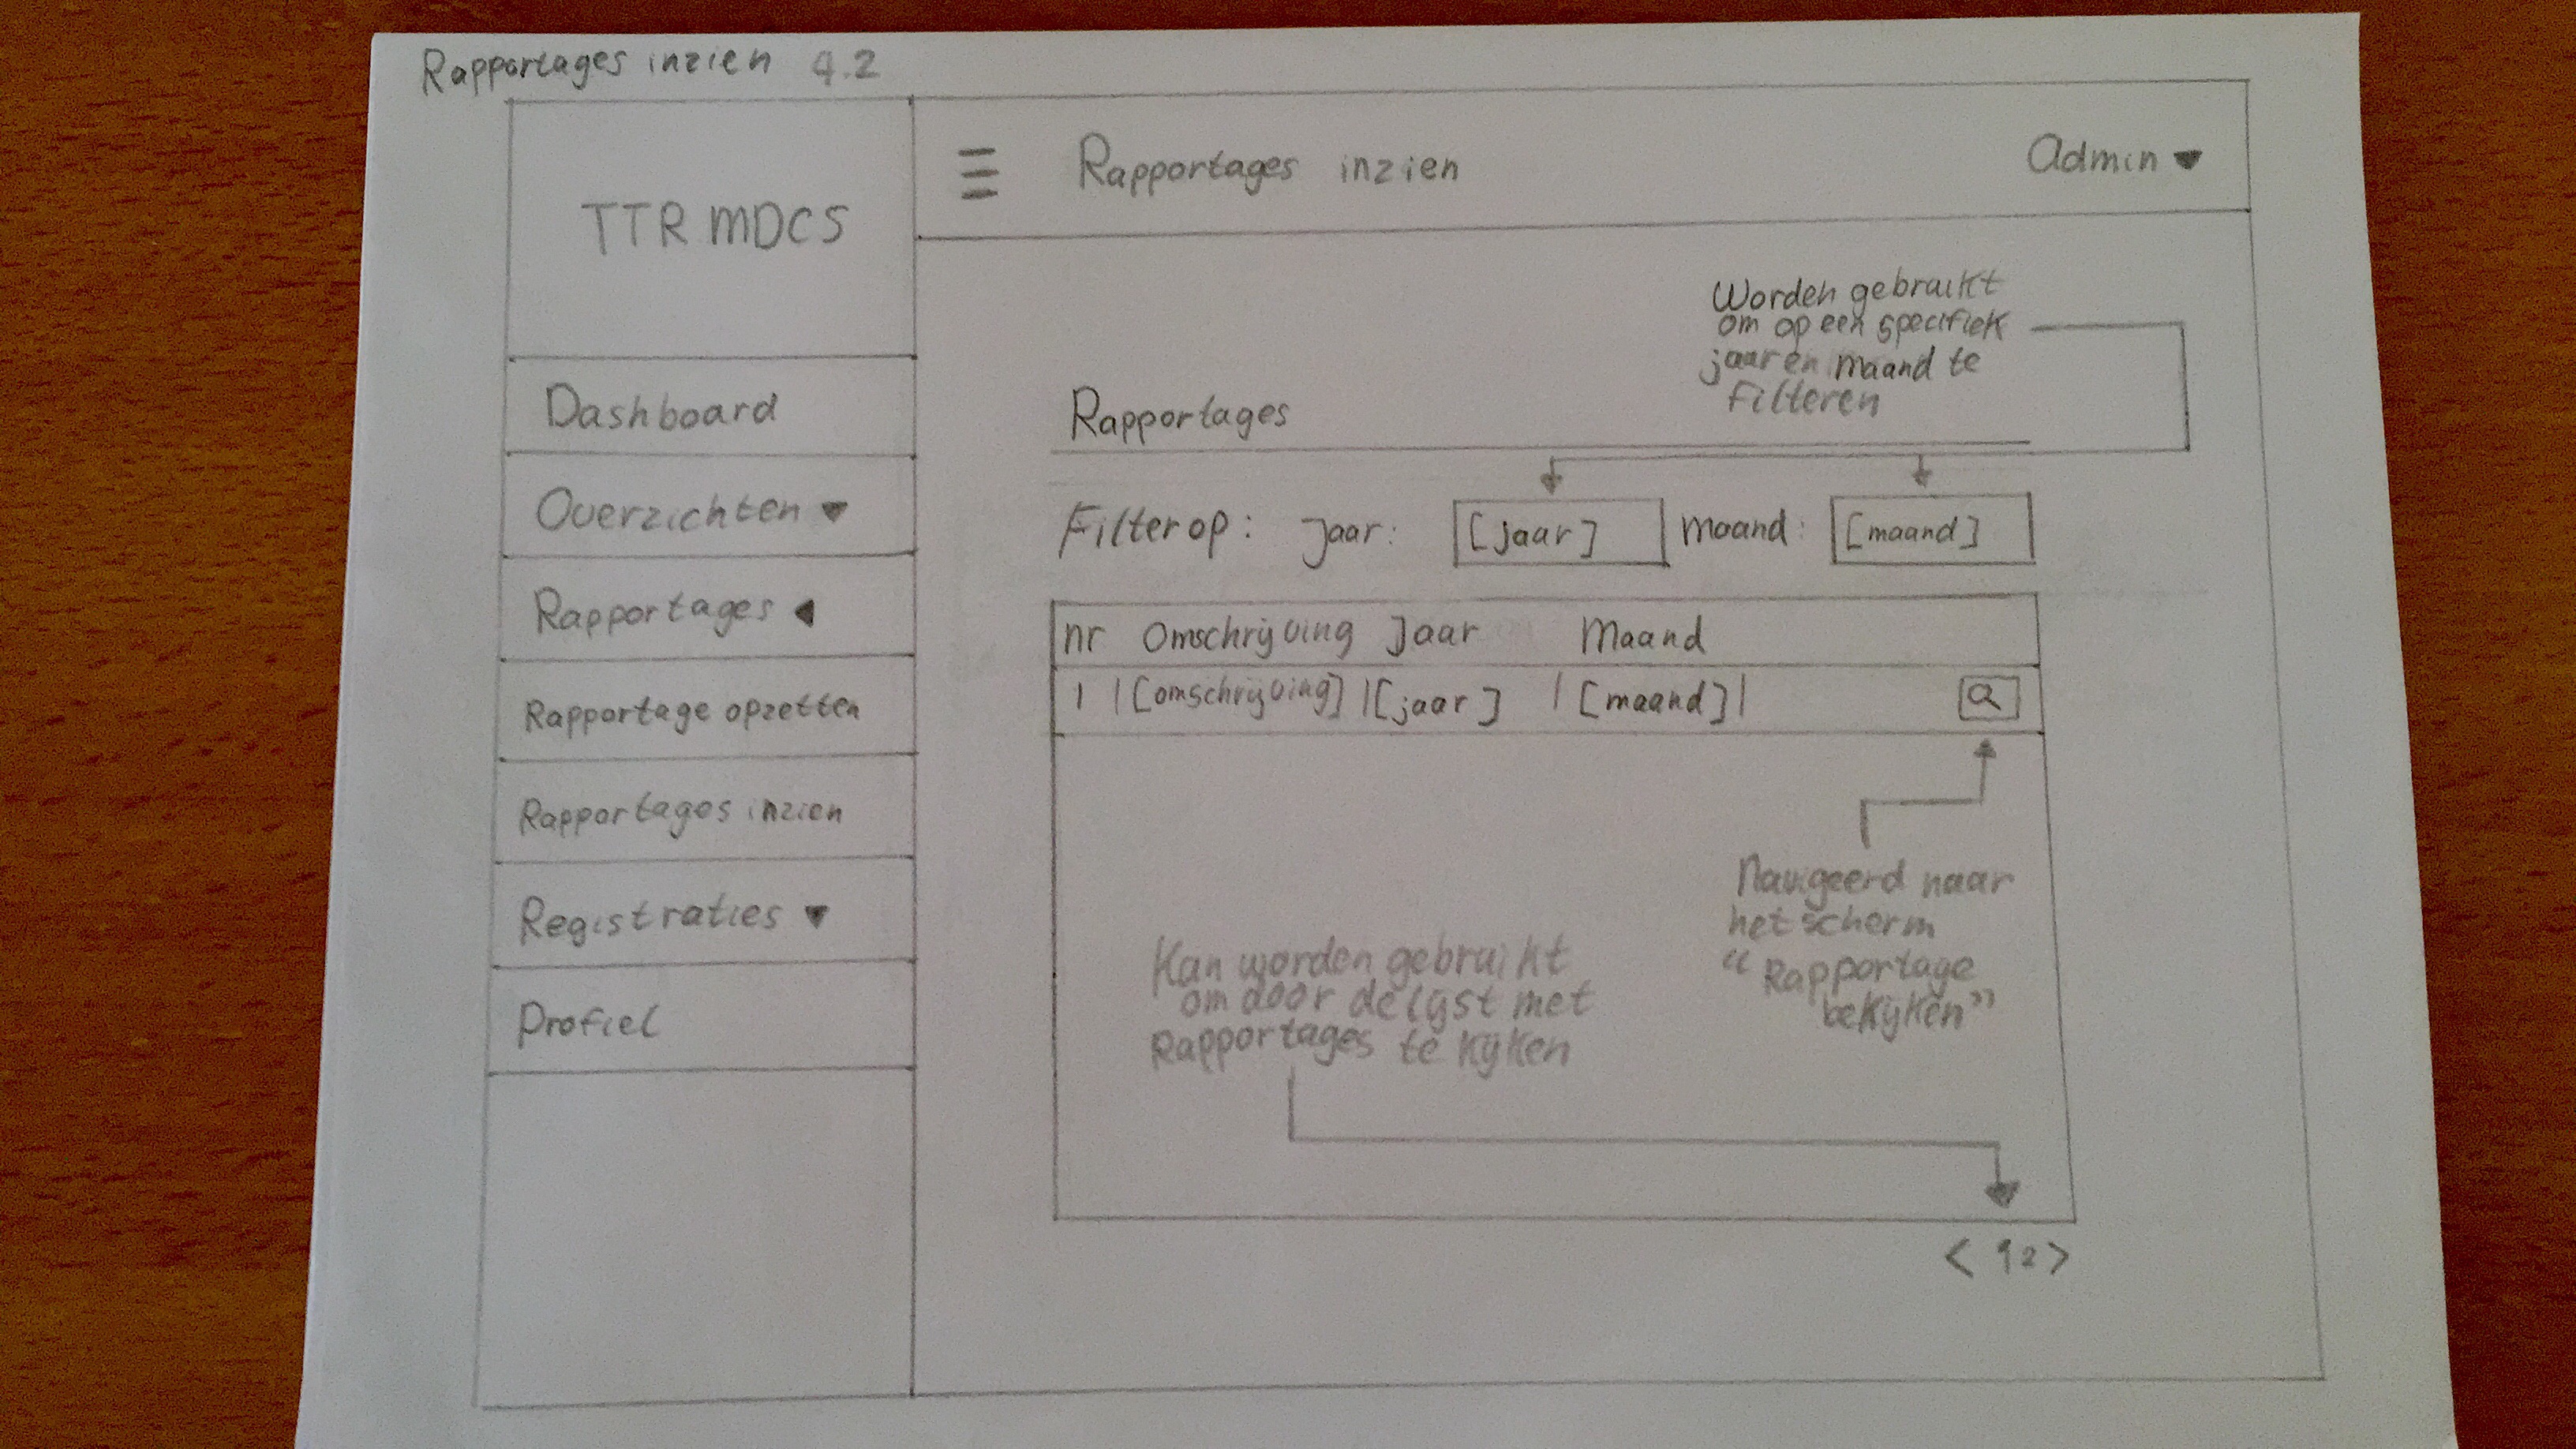 Rapportages inzien 4.2
TTR MDCS
Rapportages inzien
Admin
Dashboard
Overzichten
Rapportages
Rapportage opzetten
Rapportages inzien
Registraties
Profiel
Worden gebruikt
om op een specifiek
jaar en maand te
Filteren
Rapportages
Filter op: Jaar: [jaar] Maand: [maand]
nr Omschrijving Jaar Maand
1 | [omschrijving] | [jaar] | [maand] |
Navigeerd naar
het scherm
“Rapportage
bekijken”
Kan worden gebruikt
om door de lijst met
Rapportages te kijken
< 1 2 >